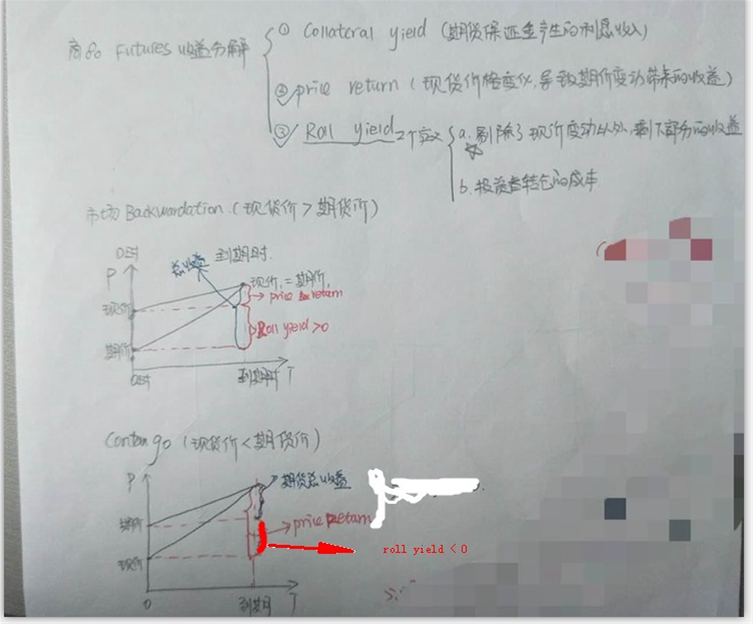 商品 Futures 收益分解
① Collateral yield (期货保证金产生的利息收入)
② price return (现货价格变化,导致期价变动带来的收益)
③ Roll yield 2个含义
a. 剔除了现价变动以外,剩下部分的收益
b. 投资者转仓的成本
市场 Backwardation (现货价 > 期货价)
0时
P
总收益
到期时
现价 = 期价
price return
现货价
Roll yield > 0
期价
0时
到期时 T
Contango (现货价 < 期货价)
P
期货总收益
期价
price return
roll yield < 0
现价
0
到期时 T